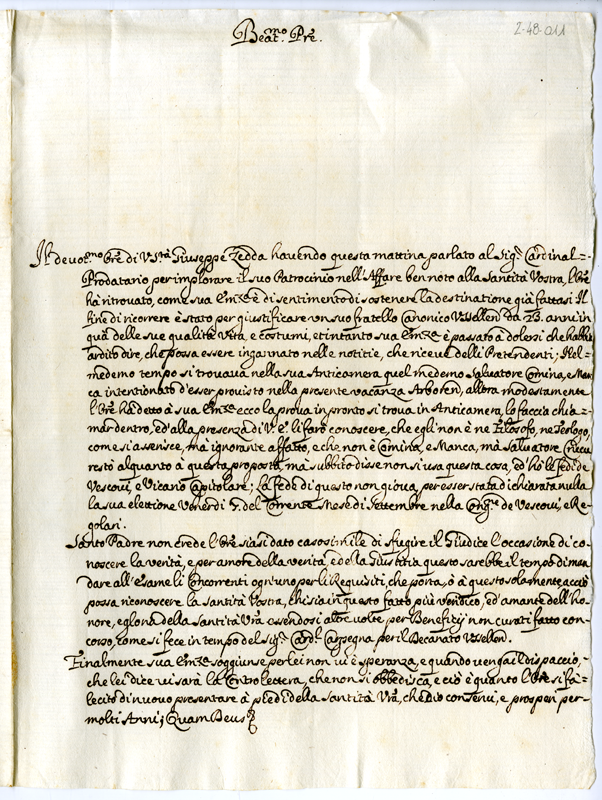 Beat.mo Pre.
2-48-011
Il devot.mo Ore di V.stà Giuseppe Zedda havendo questa mattina parlato al Sig.r Cardinal=
Prodatario per implorare il suo Patrocinio nell'Affare ben noto alla Santità Vostra, l'Ore
hà ritrovato, come sua Em.ze è di sentimento di sostenere la destinatione già fattasi Il
fine di ricorrere è stato per giustificare un suo fratello Canonico Usellen da 23. anni in
quà delle sue qualità Vita, e costumi, et intanto sua Em.ze è passato a dolersi che habbia
ardito dire, che possa essere ingannato nelle notitie, che riceve delli Pretendenti; Nel
medemo tempo si trovava nella sua Anticamera quel medemo Salvatore Comina, e Man
ca intentionato d'esser provisto nella presente vacanza Arboren, allora modestamente
l'Ore hà detto à sua Em.ze ecco la prova in pronto si trova in Anticamera, lo faccia chia=
mar dentro, ed'alla presenza di V.E. li farò conoscere, che egli non è ne Filosofo, ne Teologo,
come si asserisce, mà ignorante affatto, e che non è Comina, e Manca, mà Salvatore
restò alquanto à questa proposta, mà subbito disse non si usa questa cosa, ed' hò le fedi de
Vescovi, e Vicario Capitolare; La fede di questo non giova, per esser stata dichiarata nulla
la sua elettione Venerdi del Corrente Mese di Settembre nella Cong.ne de Vescovi, e Re
golari.
Santo Padre non crede l'Ore siasi dato caso simile di sfugire il Giudice l'occasione di co=
noscere la verità, e per amore della verità, e de la Giustitia questo sarebbe il tempo di man
dare all'esame li Concorrenti ogni uno per li Requisiti, che porta, ò à questo solamente acciò
possa riconoscere la Santità Vostra, chi sia in questo fatto più veridico, ed'amante dell'ho=
nore, e gloria della Santità Vra, essendosi altre volte per Benefitij non curati fatto con=
corso, come si fece in tempo del Sig.r Card.l Carpegna per il Decanato Usellen.
Finalmente sua Em.ze soggiunse per lei non vi è speranza, e quando venga il dispaccio,
che lei dice vi sarà la Controlettera, che non si obbedisca, e ciò è quanto l'Ore si fà
lecito di nuovo presentare à piedi della Santità Vra, che Dio conservi, e prosperi per
molti Anni; Quam Deus